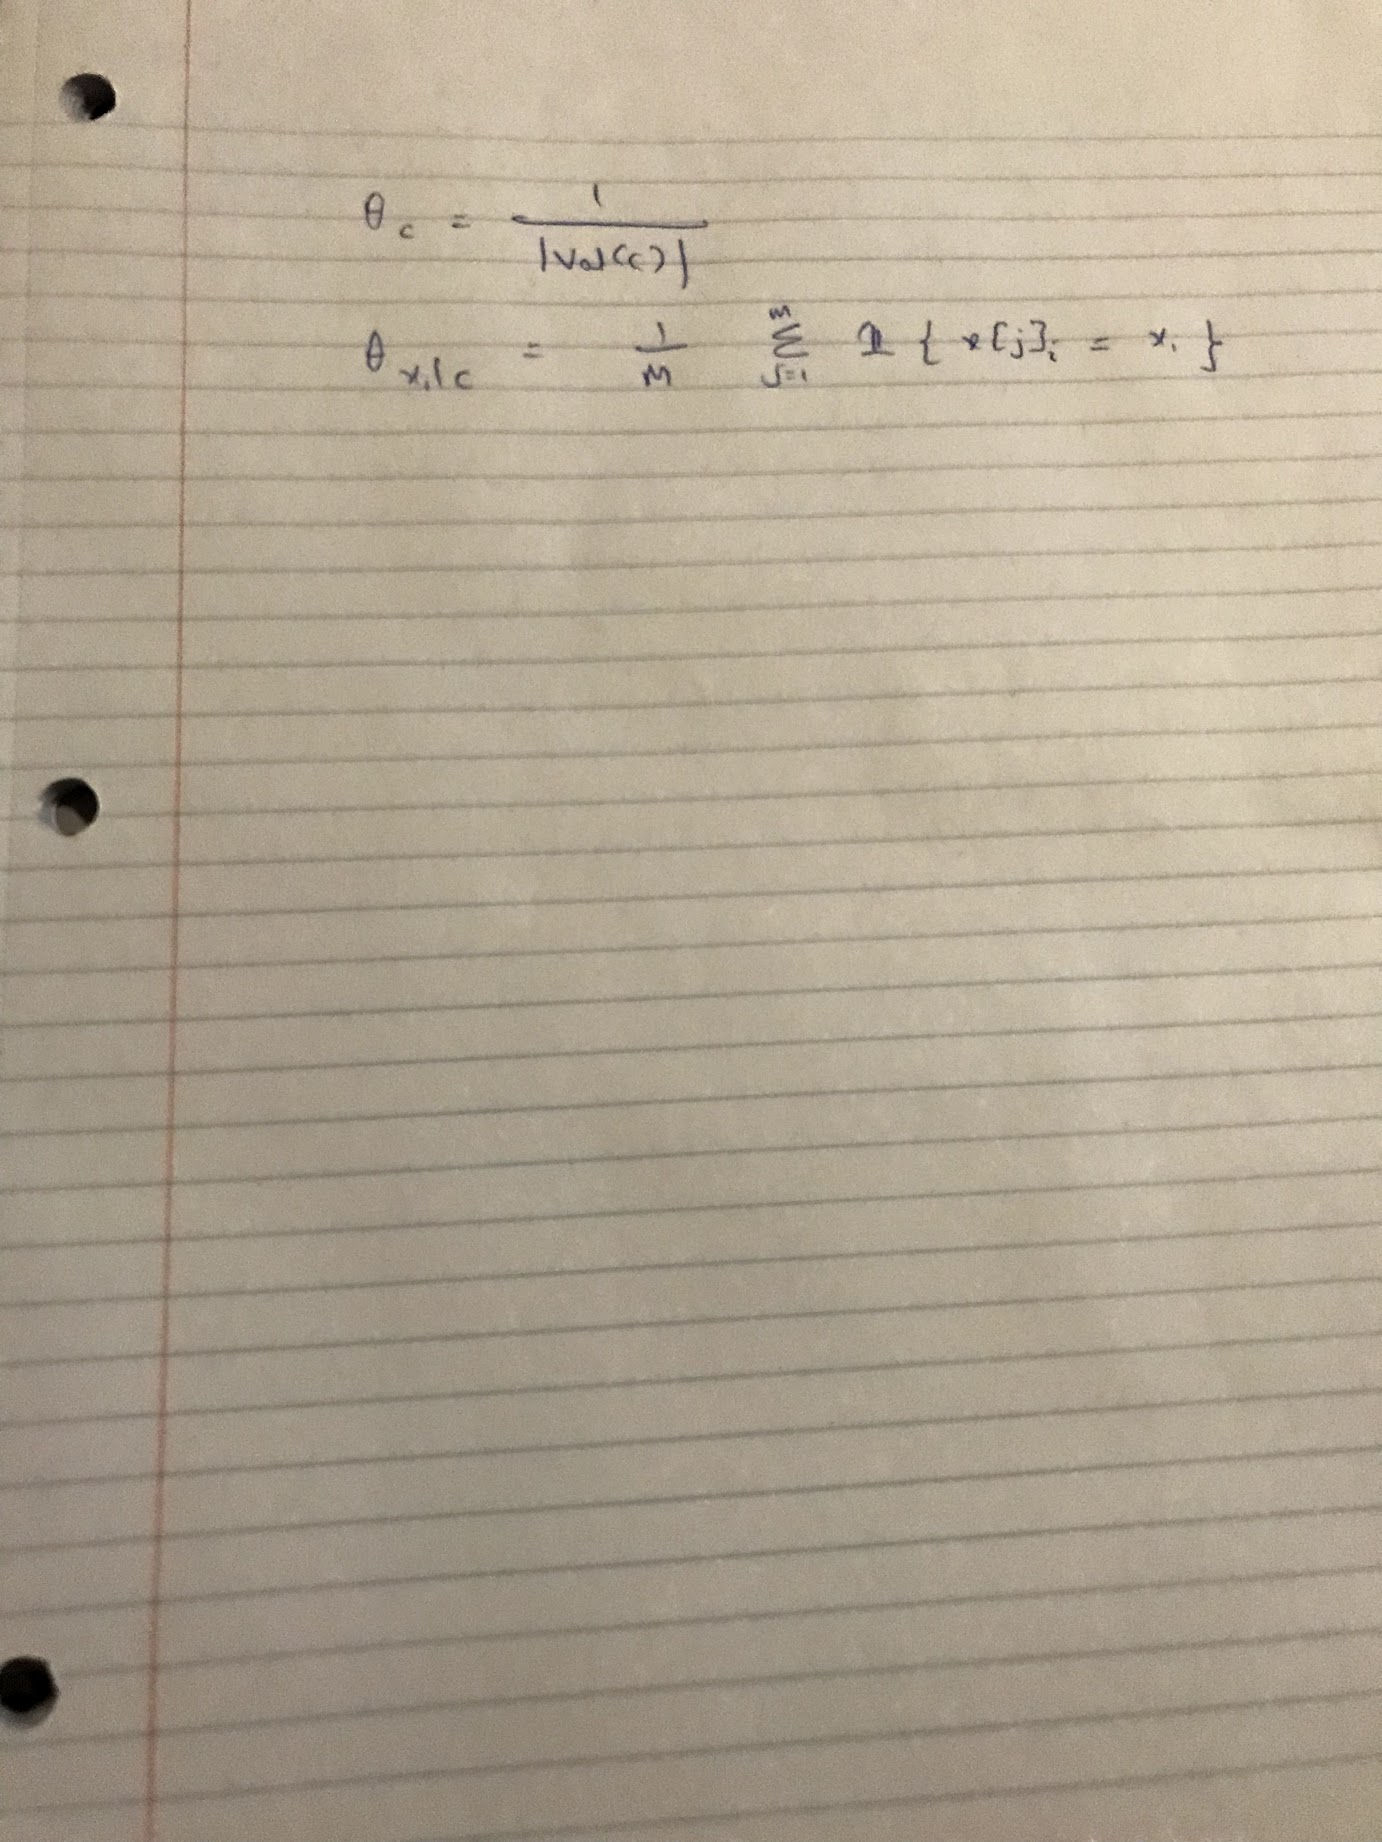 θ_c = 1 / |Val(c)|
θ_{x_i|c} = 1/M ∑_{j=1}^{M} 𝟙 { x[j]_i = x_i }